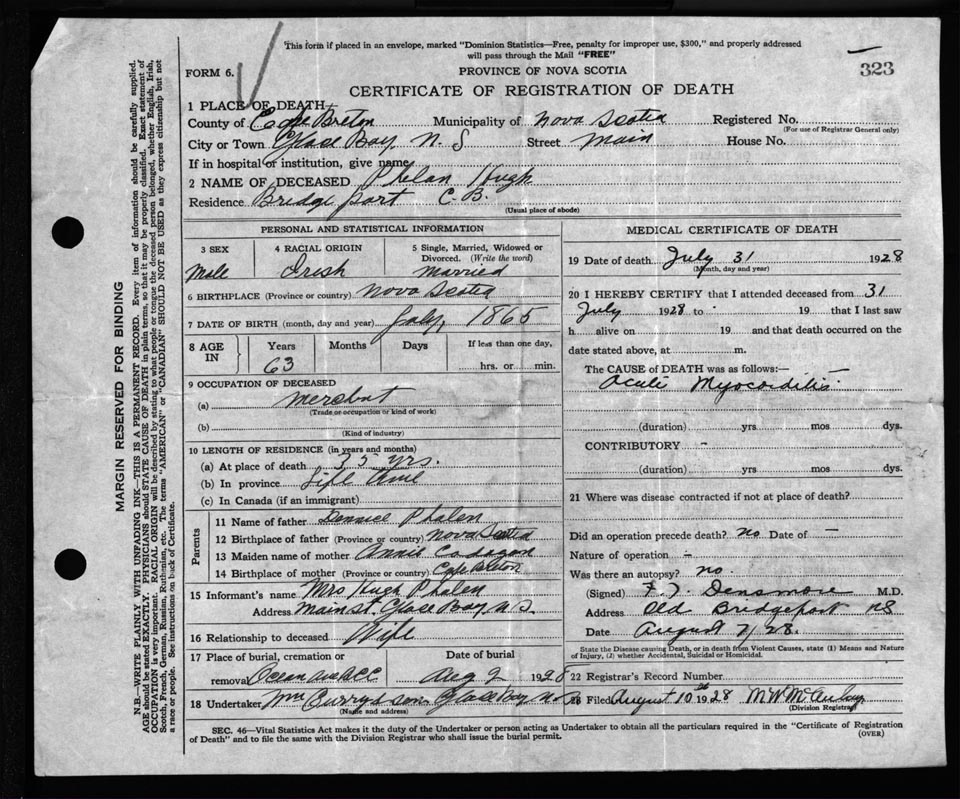 This form if placed in an envelope, marked "Dominion Statistics—Free, penalty for improper use, $300," and properly addressed
will pass through the Mail "FREE"
323
FORM 6.
PROVINCE OF NOVA SCOTIA
CERTIFICATE OF REGISTRATION OF DEATH
1 PLACE OF DEATH
County of Cape Breton Municipality of Nova Scotia Registered No.
(For use of Registrar General only)
City or Town Glace Bay N. S Street Main House No.
If in hospital or institution, give name
2 NAME OF DECEASED Phelan Hugh
Residence Bridgeport C. B.
(Usual place of abode)
PERSONAL AND STATISTICAL INFORMATION
3 SEX 4 RACIAL ORIGIN 5 Single, Married, Widowed or
Divorced. (Write the word)
Male Irish Married
6 BIRTHPLACE (Province or country) Nova Scotia
7 DATE OF BIRTH (month, day and year) July, 1865
8 AGE IN Years Months Days If less than one day,
63 hrs. or min.
9 OCCUPATION OF DECEASED
(a) Merchant
(Trade or occupation or kind of work)
(b)
(Kind of industry)
10 LENGTH OF RESIDENCE (in years and months)
(a) At place of death 35 yrs.
(b) In province Life time
(c) In Canada (if an immigrant)
Parents
11 Name of father Phelan
12 Birthplace of father (Province or country) Nova Scotia
13 Maiden name of mother Annie Cadagan
14 Birthplace of mother (Province or country) Cape Breton
15 Informant's name Mrs Hugh Phalen
Address Main St. Glace Bay N. S
16 Relationship to deceased Wife
17 Place of burial, cremation or Date of burial
removal Aug 2 1928
18 Undertaker Wm Curry & son Glace Bay N. S
(Name and address)
MEDICAL CERTIFICATE OF DEATH
19 Date of death July 31 1928
(Month, day and year)
20 I HEREBY CERTIFY that I attended deceased from 31
July 1928 to 19 that I last saw
h alive on 19 and that death occurred on the
date stated above, at m.
The CAUSE of DEATH was as follows:—
Acute Myocarditis
(duration) yrs mos dys.
CONTRIBUTORY –
(duration) yrs mos dys.
21 Where was disease contracted if not at place of death?
Did an operation precede death? no Date of –
Nature of operation –
Was there an autopsy? no.
(Signed) Densmore M.D.
Address Old Bridgeport NS
Date August 2/28.
State the Disease causing Death, or in death from Violent Causes, state (1) Means and Nature
of Injury, (2) whether Accidental, Suicidal or Homicidal.
22 Registrar's Record Number
26
Filed August 10 1928
(Division Registrar)
SEC. 46—Vital Statistics Act makes it the duty of the Undertaker or person acting as Undertaker to obtain all the particulars required in the "Certificate of Registration
of Death" and to file the same with the Division Registrar who shall issue the burial permit.
(OVER)
MARGIN RESERVED FOR BINDING
N.B.—WRITE PLAINLY WITH UNFADING INK—THIS IS A PERMANENT RECORD. Every item of information should be carefully supplied.
AGE should be stated EXACTLY. PHYSICIANS should STATE CAUSE OF DEATH in plain terms, so that it may be properly classified. Exact statement of
OCCUPATION is very important. RACIAL ORIGIN will be described by stating to what people or tongue the deceased person belonged, whether English, Irish,
Scotch, French, German, Russian, Ruthenian, etc. The terms "AMERICAN" or "CANADIAN" SHOULD NOT BE USED as they express citizenship but not
a race or people. See instructions on back of Certificate.